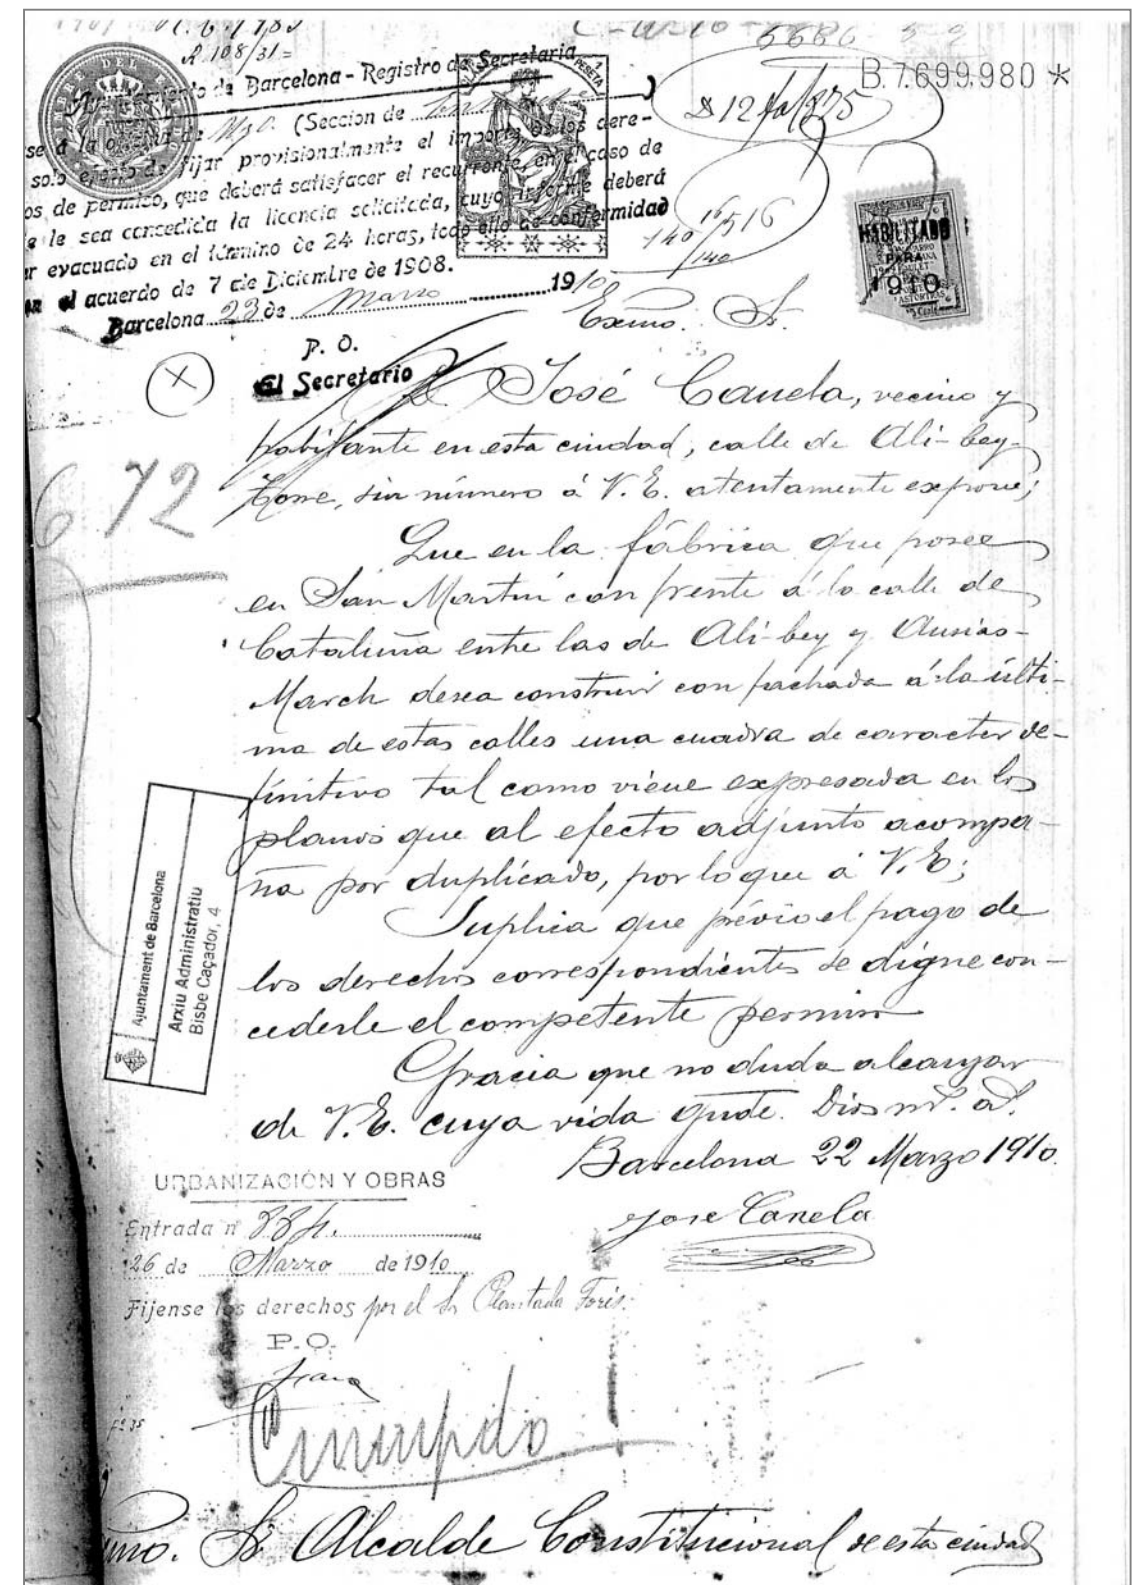 5686
B.7.699,980 *
A 108/31=
Ayuntamiento de Barcelona - Registro de Secretaria
1 PESETA
se á la de (Seccion de
solo efecto de fijar provisionalmente el importe de los dere-
os de permiso, que deberá satisfacer el recurrente, en el caso de
e le sea concedida la licencia solicitada, cuyo informe deberá
r evacuado en el término de 24 horas, todo ello de conformidad
el acuerdo de 7 de Diciembre de 1908.
Barcelona 23 de Marzo 1910
140 16/516
/140
HABILITADO
PARA
1910
P. O.
El Secretario
Exmo. Sr.
X
672
D. José Canela, vecino y
habitante en esta ciudad, calle de Ali-bey-
Torre, sin número á V. E. atentamente expone;
Que en la fábrica que posee
en San Martin con frente á la calle de
Cataluña entre las de Ali-bey y Ausias-
March desea construir con fachada á la últi-
ma de estas calles una cuadra de caracter de-
finitivo tal como viene expresada en los
planos que al efecto adjunto acompa-
ña por duplicado, por lo que á V. E;
Suplica que prévio el pago de
los derechos correspondientes se digne con-
cederle el competente permiso
Gracia que no duda alcanzar
de V. E. cuya vida gude. Dios ms. as.
Barcelona 22 Marzo 1910.
Jose Canela
Ajuntament de Barcelona
Arxiu Administratiu
Bisbe Caçador, 4
URBANIZACIÓN Y OBRAS
Entrada n
26 de Marzo de 1910
Fijense los derechos por el Sr Plantada Forés.
P.O.
fº 35
Cumplido
Exmo. Sr Alcalde Constitucional de esta ciudad